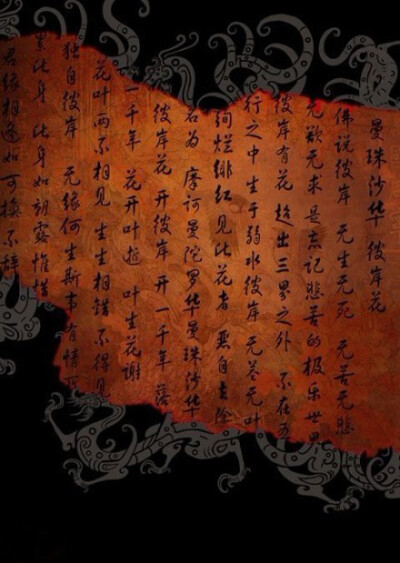 曼珠沙华 彼岸花
佛说彼岸 无生无死 无苦无悲
无欲无求 是忘记悲苦的极乐世界
彼岸有花 超出三界之外 不在五
行之中 生于弱水彼岸 无茎无叶
绚烂绯红 见此花者 恶自去除
名为摩诃曼陀罗华曼珠沙华
彼岸花 开彼岸 开一千年 落
一千年 花开叶 叶生花谢
花叶两不相见 生生相错 不得见
独自彼岸 无缘何生斯世 有情
累此身 此身如朝露 惟惜
君缘 相逢如可换 不辞